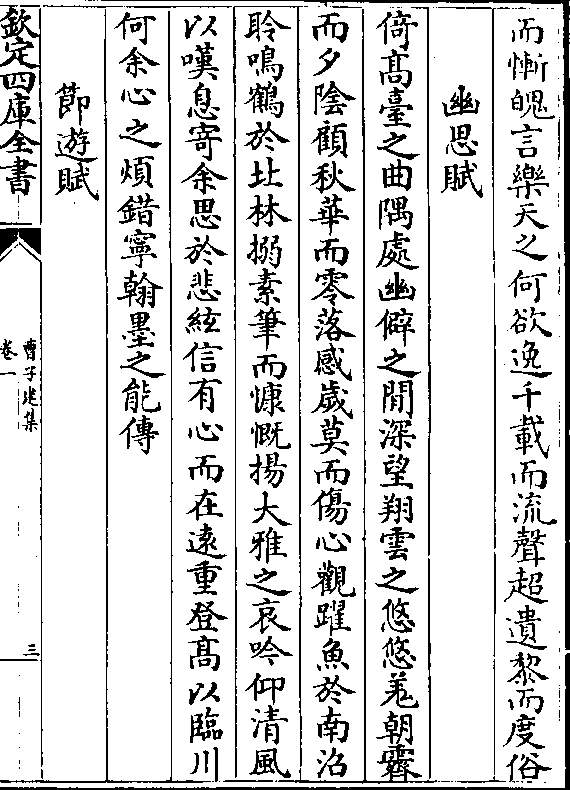 而慚愧言樂天之何欲逸千載而流聲超遺黎而度俗
幽思賦
倚髙臺之曲隅處幽僻之閒深望翔雲之悠悠羌朝霽
而夕隂顧秋華而零落感歲莫而傷心觀躍魚於南沼
聆鳴鶴於北林搦素筆而慷慨揚大雅之哀吟仰清風
以嘆息寄余思於悲絃信有心而在逺重登髙以臨川
何余心之煩錯寧翰墨之能傳
節遊賦
欽定四庫全書
曹子建集
卷一
三